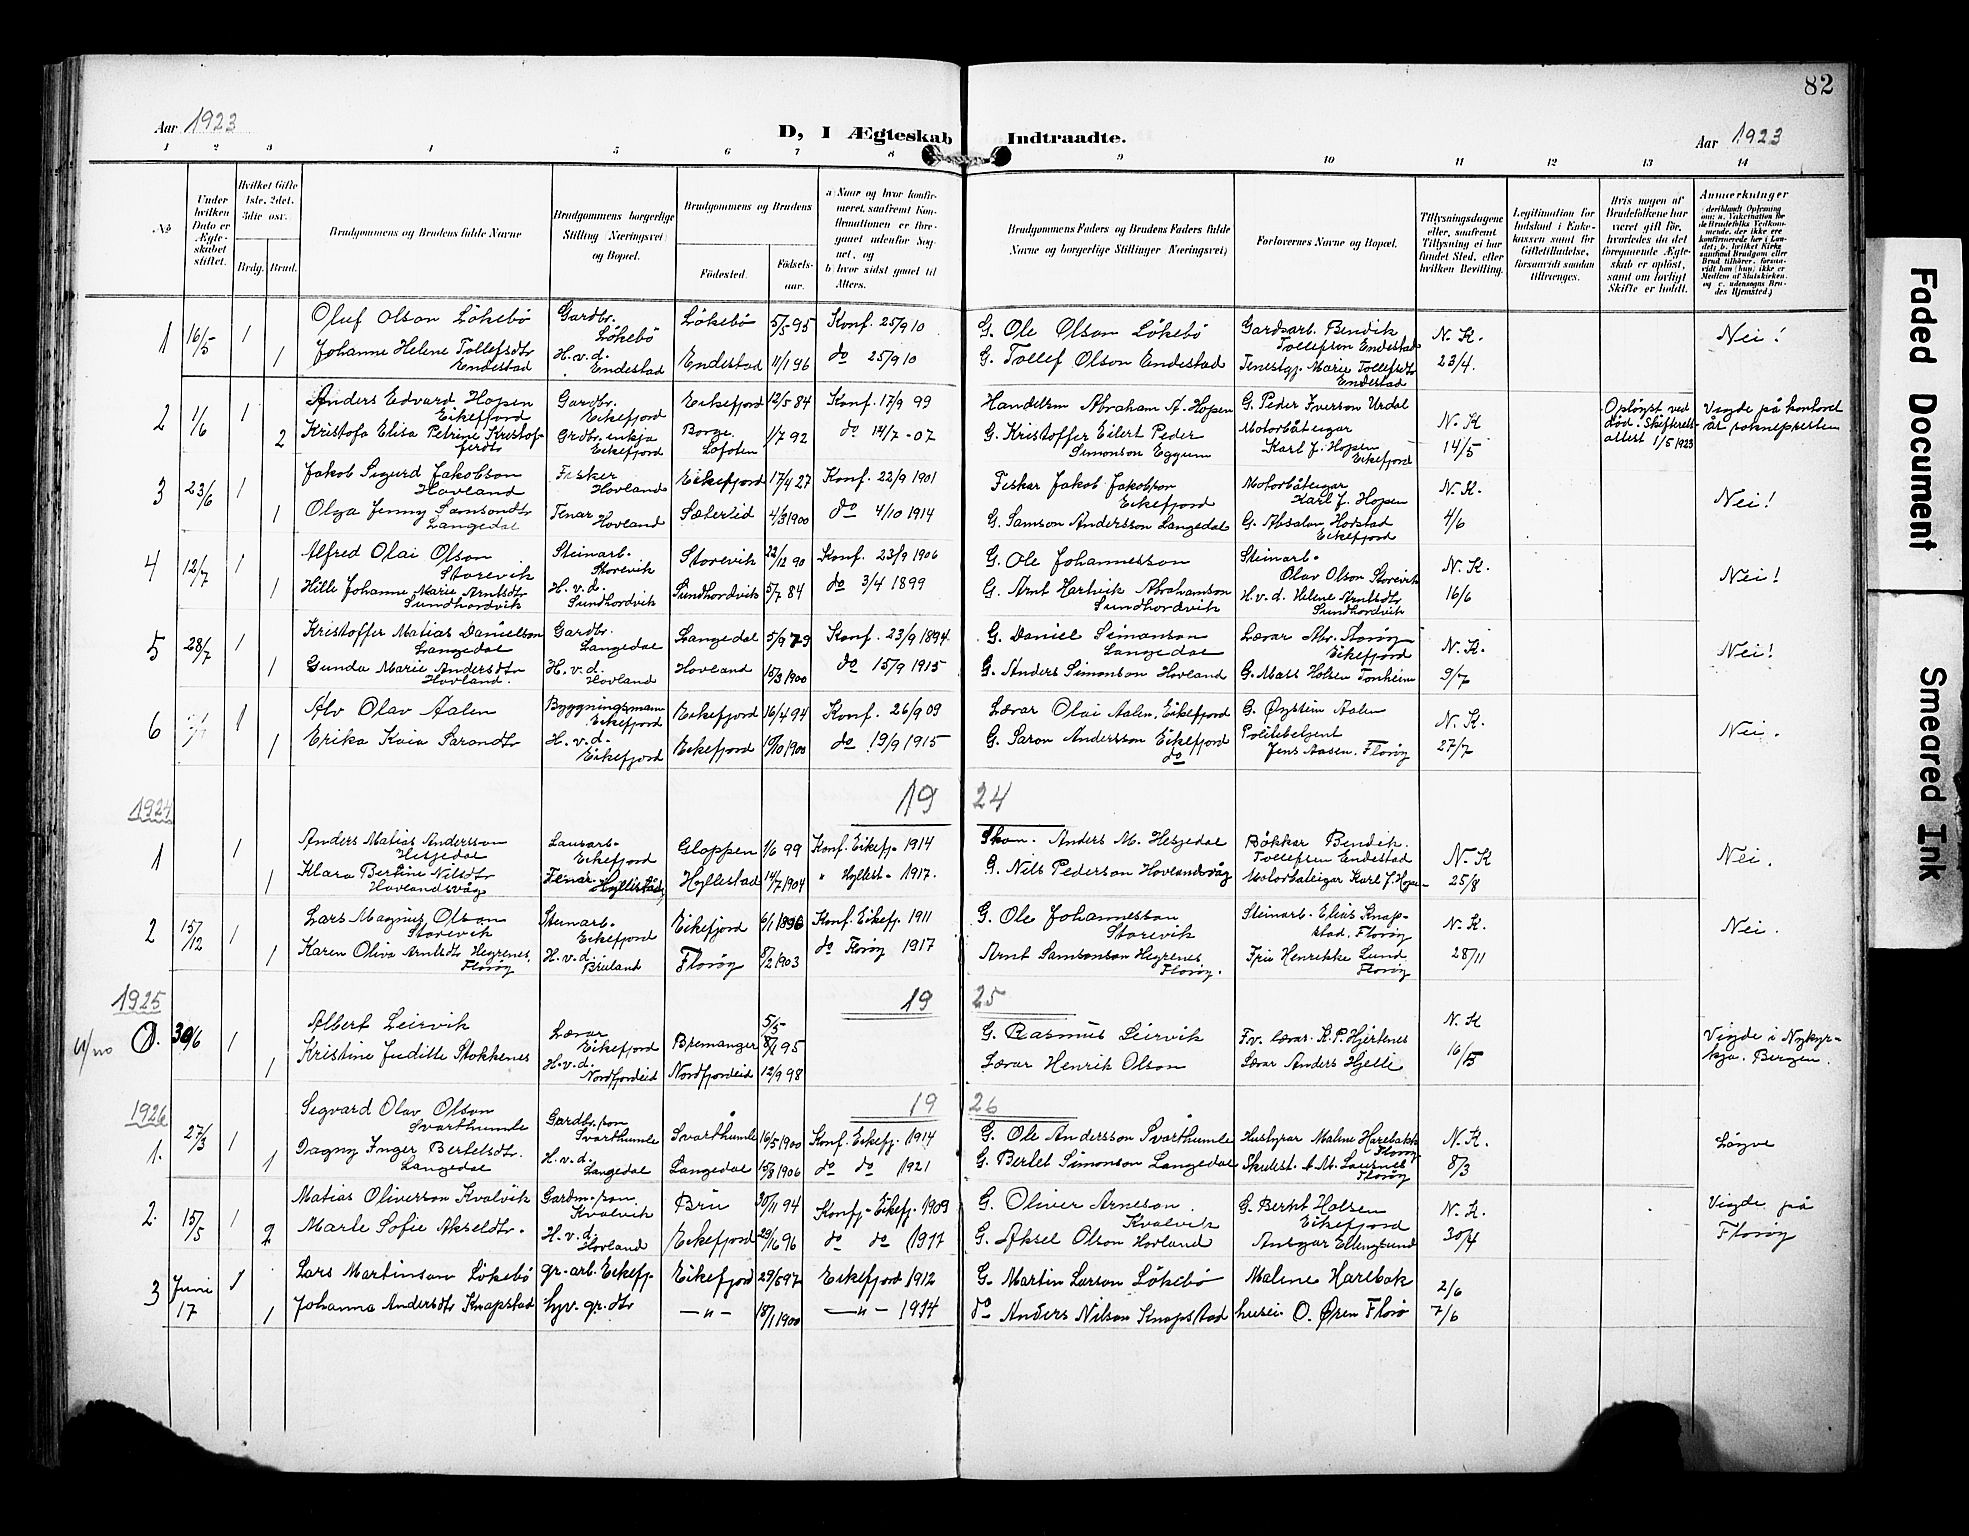 82
Aar 1923
D, I Ægteskab Indtraadte.
Aar 1923
1 2 3 4 5 6 7 8 9 10 11 12 13 14
No
Under hvilken Dato er Ægteskabet stiftet.
Hvilket Gifte 1ste, 2det, 3die osv.
Brdg. Brud.
Brudgommens og Brudens fulde Navne
Brudgommens borgerlige Stilling (Næringsvei) og Bopæl.
Brudgommens og Brudens
Födested.
Födselsaar.
a) Naar og hvor konfirmeret, saafremt Konfirmationen er foregaaet udenfor Sognet, og
b) hvor sidst gaaet til Alters.
Brudgommens Faders og Brudens Faders fulde Navne og borgerlige Stillinger (Næringsvei)
Forlovernes Navne og Bopæl.
Tillysningsdagene eller, saafremt Tillysning ei har fundet Sted, efter hvilken Bevilling.
Legitimation for Indskud i Enkekassen samt for Giftetilladelse, forsaavidt saadan tiltrænges.
Hvis nogen af Brudefolkene har været gift för, hvorledes da det foregaaende Ægteskab er oplöst, samt om lovligt Skifte er holdt.
Anmærkninger
1 16/5 1 Oluf Olson Lökebö Gardbr. Lökebö Lökebö 5/5 95 Konf. 25/9 10 G. Ole Olson Lökebö Gardsarb. Bendik Tollefson Endestad N. K. Nei!
1 Johanne Helene Tollefsdtr Endestad H.v.d. Endestad Endestad 11/1 96 do 25/9 10 G. Tollef Olson Endestad Tenestgj. Marie Tollefsdtr Endestad 23/4.
2 1/6 1 Anders Edvard Hopen Eikefjord Gardbr. Eikefjord Eikefjord 12/5 84 Konf. 17/9 99 Handelsm Abraham A. Hopen G. Peder Iverson Urdal N. K Opløyst ved död. Skifterett attest 1/5 1923 Vigde på kontoret åt soknepresten
2 Kristofa Elisa Petrine Kristoffersdtr Grdbr. enkja Eikefjord Borge. Lofoten 1/7 92 do 14/7 - 07 G. Kristoffer Eilert Peder Simonson Eggum Motorbåteigar Karl J. Hopen Eikefjord 14/5
3 23/6 1 Jakob Sigurd Jakobson Hovland Fisker Hovland Eikefjord 17/4 27 Konf. 22/9 1901 Fiskar Jakob Jakobson Eikefjord Motorbåteigar Karl J. Hopen N. K. Nei!
1 Olga Jenny Samsondtr Langedal Tenar Hovland Sæterlid 4/3 1900 do 4/10 1914 G. Samson Andersson Langedal G. Absalon Horstad Eikefjord 4/6
4 12/7 1 Alfred Olai Olson Storevik Steinarb. Storevik Storevik 22/12 90 Konf. 23/9 1906 G. Ole Johannesson Steinarb. Olav Olson Storevik N. K. Nei!
1 Hille Johanne Marie Arntsdtr Sundhordvik H.v.d. Sundhordvik Sundhordvik 5/7 84 do 3/4 1899 G. Arnt Hartvik Abrahamson Sundhordvik H.v.d. Helene Arntsdtr Sundhordvik 16/6
5 28/7 1 Kristoffer Matias Danielson Langedal Gardbr. Langedal Langedal 5/9 79 Konf. 23/9 1894. G. Daniel Simonson Langedal Lærar Eikefjord N. K. Nei!
1 Gunda Marie Andersdtr Hovland. H.v.d. Hovland Hovland 15/3 1900 do 15/9 1915 G. Anders Simonson Hovland G. Mass Holsen Tonheim 9/7
6 1 Alv Olav Aalen Byggningsmann Eikefjord Eikefjord 16/4 94 Konf. 26/9 09 Lærar Olai Aalen, Eikefjord G. Øystein Aalen N. K. Nei.
1 Erika Kaia Sarondtr H.v.d. Eikefjord Eikefjord 1900 do 19/9 1915 G. Saron Andersson Eikefjord do Politibetjent Jens Aasen. Florøy 27/7
1924
19 24
1 1 Anders Matias Andersson Hesjedal Eikefjord Gloppen 1/6 99 Konf. Eikefj. 1914 Anders M. Hesjedal Bökkar Bendik Tollefsen Endestad N. K Nei.
1 Klara Bertine Nilsdtr Hovlandsvåg Tenar Hyllestad Hyllestad 14/7 1904 " Hyllest. 1917. G. Nils Pederson Hovlandsvåg Motorbåteigar Karl J. Hopen 25/8
2 15/12 1 Lars Magnus Olson Storevik Steinarb. Eikefjord Eikefjord 6/1 1896 Konf. Eikefj. 1911 G. Ole Johannesson Storevik Steinarb. Elias Knapstad. Florøy N. K. Nei.
1 Karen Oliva Arntsdtr Hegrenes, Florøy H.v.d. Florøy 8/2 1903 do Florøy 1917 Arnt Samsonson Hegrenes, Florøy. Fru Henrikke Lund Florøy 28/11
1925
19 25
u/no 1. 30/6 1 Albert Leirvik Lærar Eikefjord Bremanger 5/5 95 G. Rasmus Leirvik Fv. lærar K. P. Hjertenes N. K Vigde i Nykyrkja. Bergen.
1 Kristine Juditte Stokkenes H.v.d. Nordfjordeid Nordfjordeid 12/9 98 Lærar Henrik Olson Lærar Anders Hjelle 16/5
1926
19 26
1. 27/3 1 Segvard Olav Olson Svarthumle Gardbr. son Svarthumle Svarthumle 16/5 1900 Konf. Eikefj. 1914 G. Ole Andersson Svarthumle Hustyrar Malene Harebakk Florøy N. K. Løyve
1 Dagny Inger Bertelsdtr. Langedal H.v.d. Langedal Langedal 15/8 1906 do do 1921 G. Bertel Simonson Langedal Florøy 8/3
2. 15/5 1 Matias Oliverson Kvalvik Gardm. son Kvalvik Bru 30/11 94 Konf. Eikefj. 1909 G. Oliver Arneson. Kvalvik G. Bernt Holsen Eikefjord N. K. Vigde på Florøy
2 Marte Sofie Akseldtr. H.v.d. Hovland Eikefjord 29/11 96 do do 1911 G. Aksel Olson Hovland Ansgar Ellingsund 30/4
3 Juni 17 1 Lars Martinson Lökebö gr. arb. Eikefj. Eikefjord 29/5 97 Eikefjord 1912 G. Martin Larson Lökebö Malene Harebak 2/6
1 Johanna Andersdtr Knapstad hjv. gr. dtr — " — 18/1 1900 — " — 1914 do Anders Nilson Knapstad husei. O. Øren Florö 7/6
Faded Document
Smeared Ink